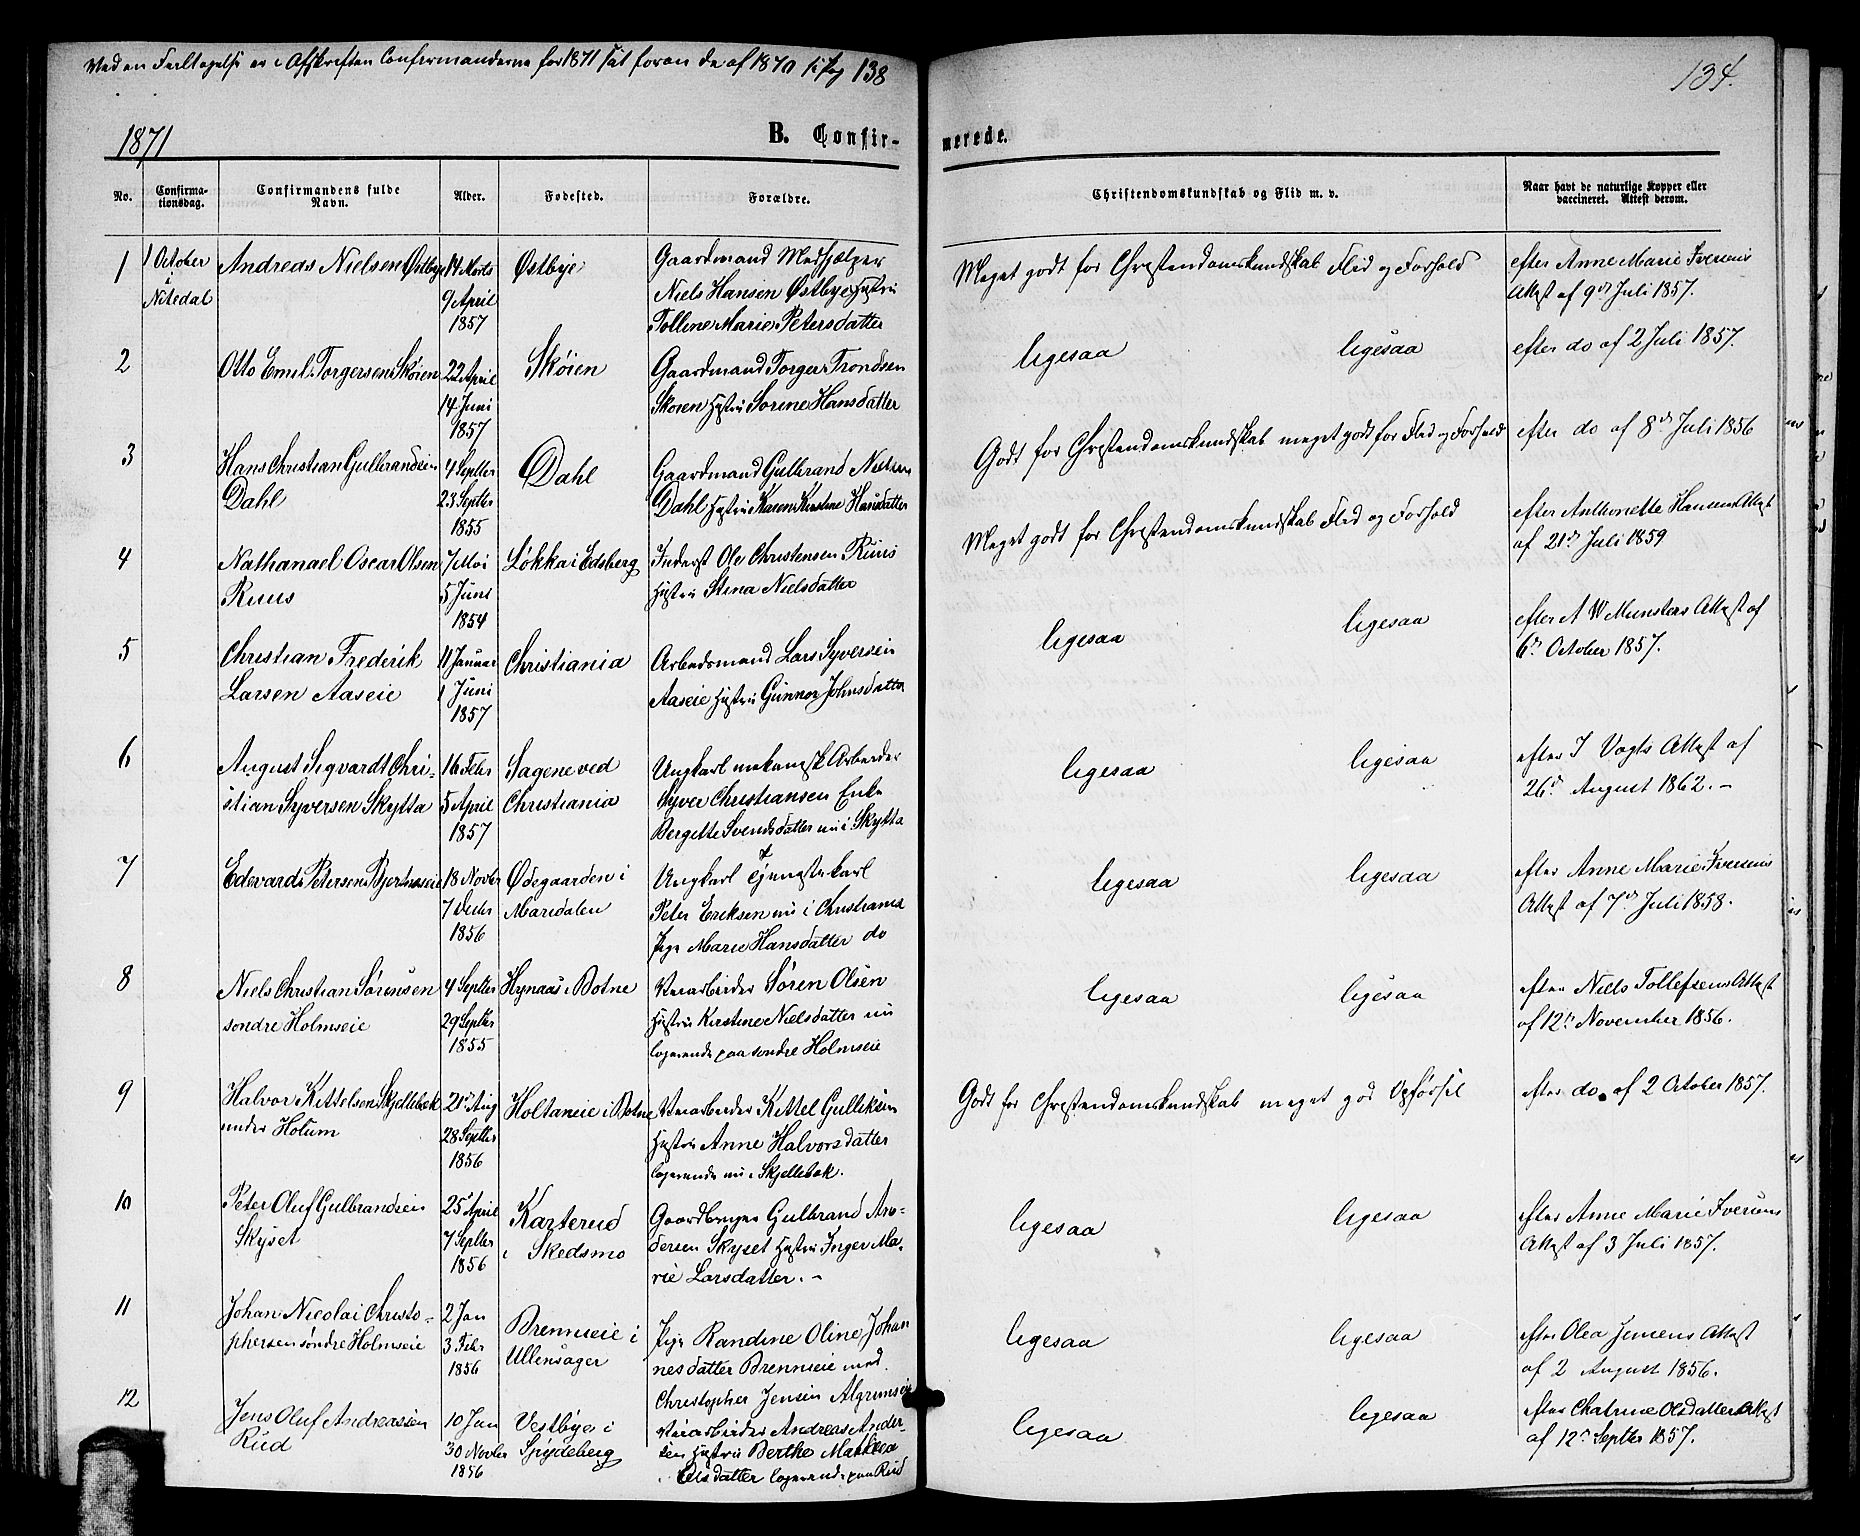 Ved en Feiltagelse er i Afskriften Confirmanderne for 1871 sat foran de af 1870 138
134.
1871
B. Confir-
merede.
No.
Confirma-
tionsdag.
Confirmandens fulde
Navn.
Alder.
Fødested.
Forældre.
Christendomskundskab og Flid m. v.
Naar havt de naturlige Kopper eller
vaccineret. Attest derom.
1
1 October
i
Nitedal
Andreas Nielsen Østbye
14 Marts
9 April
1857
Østbye
Gaardmand Medhjælper
Niels Hansen Østbye Hustru
Tolline Marie Petersdatter
Meget godt for Christendomskundskab Flid og Forhold
efter Anne Marie Iversens
Attest af 9de Juli 1857.
2
Otto Emil Torgersen Skøien
22 April
14 Juni
1857
Skøien
Gaardmand Torger Trondsen
Skøien Hustru Sorine Hansdatter
ligesaa ligesaa
efter do af 2 Juli 1857.
3
Hans Christian Gulbrandsen
Dahl
4 Septbr
23 Septbr
1855
Dahl
Gaardmand Gulbrand Nielsen
Dahl Hustru Karen Kirstine Hansdatter
Godt for Christendomskundskab meget godt for Flid og Forhold
efter do af 8de Juli 1856
4
Nathanael Oscar Olsen
Ruus
7 Mai
5 Juni
1854
Løkka i Edsberg
Inderst Ole Christensen Ruus
Hustru Stina Nielsdatter
Meget godt for Christendomskundskab Flid og Forhold
efter Antonette Hansens Attest
af 21de Juli 1859
5
Christian Frederik
Larsen Aaseie
11 Januar
1 Juni
1857
Christiania
Arbeidsmand Lars Syversen
Aaseie Hustru Gunnor Johnsdatter
ligesaa ligesaa
efter A W Munsters Attest af
6te October 1857.
6
August Sigvardt Chri-
stian Syversen Skytta
16 Febr
5 April
1857
Sagene ved
Christiania
Ungkarl mekanisk Arbeider
Syver Christiansen Enke
Bergette Svendsdatter nu i Skytta
ligesaa ligesaa
efter I Vogts Attest af
26de August 1862. –
7
Edevard Petersen Bjertneseie
18 Novbr
7 Decbr
1856
Ødegaarden i
Maridalen
Ungkarl Tjenestekarl
Peter Eriksen nu i Christiania
Pige Marie Hansdatter do
ligesaa ligesaa
efter Anne Marie Iversens
Attest af 7de Juli 1858.
8
Niels Christian Sørensen
sondre Holmseie
4 Septbr
29 Septbr
1855
Hynaas i Botne
Veiarbeider Søren Olsen
Hustru Kirstine Nielsdatter nu
logerende paa sondre Holmseie
ligesaa ligesaa
efter Niels Tollefsens Attest
af 12te November 1856.
9
Halvor Kittelsen Skjellebæk
under Holum
21de Aug
28 Septbr
1856
Holtaneie i Botne
Veiarbeider Kittel Gulliksen
Hustru Anne Halvorsdatter
logerende nu i Skjellebæk.
Godt for Christendomskundskab meget god Opførsel
efter do. af 2 October 1857.
10
Peter Oluf Gulbrandsen
Skyset
25de April
7 Septbr
1856
Karterud
i Skedsmo
Gaardbruger Gulbrand An-
dersen Skyset Hustru Inger Ma-
rie Larsdatter. –
ligesaa ligesaa
efter Anne Marie Iversens
Attest af 3 Juli 1857.
11
Johan Nicolai Christo-
phersen søndre Holmseie
2 Jan
3 Febr
1856
Brenneeie i
Ullensager
Pige Randine Oline Johan
nesdatter Brenneeie med
Christopher Jensen Algrimseie
ligesaa ligesaa
efter Olea Jensens Attest
af 2 August 1856.
12
Jens Oluf Andreassen
Rud
10 Jan
30 Novbr
1856
Vestbye i
Spydeberg
Veiarbeider Andreas Ander-
sen Hustru Berthe Mathea
Olsdatter logerende paa Rud
ligesaa ligesaa
efter Chatrine Olsdatter Attest
af 12te Septbr 1857.